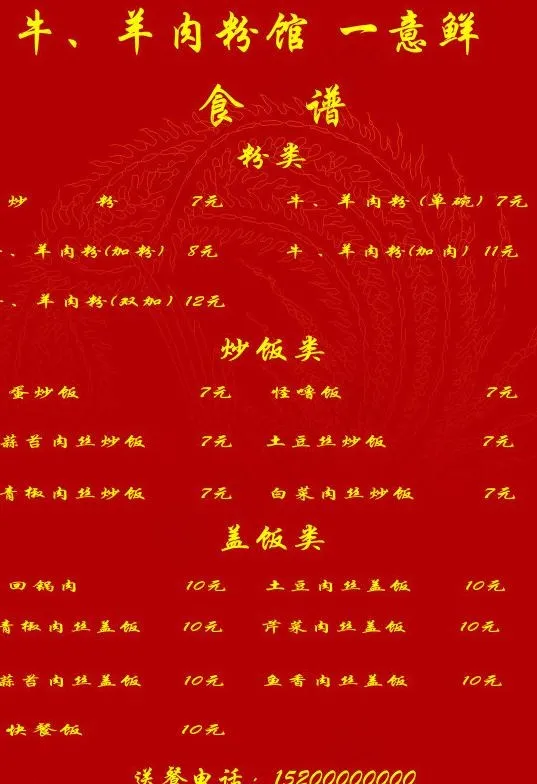 牛、羊肉粉馆 一意鲜
食 谱
粉类
炒 粉 7元 牛、羊肉粉(单碗) 7元
、羊肉粉(加粉) 8元 牛、羊肉粉(加肉) 11元
、羊肉粉(双加) 12元
炒饭类
蛋炒饭 7元 怪噜饭 7元
蒜苔肉丝炒饭 7元 土豆丝炒饭 7元
青椒肉丝炒饭 7元 白菜肉丝炒饭 7元
盖饭类
回锅肉 10元 土豆肉丝盖饭 10元
青椒肉丝盖饭 10元 芹菜肉丝盖饭 10元
蒜苔肉丝盖饭 10元 鱼香肉丝盖饭 10元
快餐饭 10元
送餐电话：15200000000